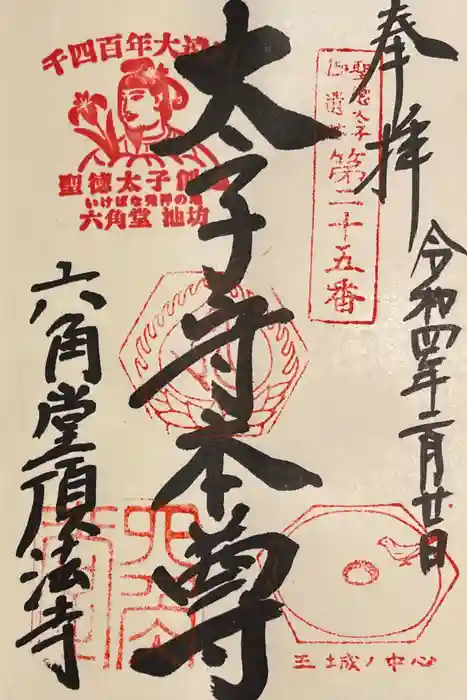 奉拝
聖徳太子
御遺跡
第二十五番
令和四年二月廿日
太子寺本尊
千四百年大
聖徳太子創
いけばな発祥の地
六角堂 池坊
王城ノ中心
六角堂頂法寺